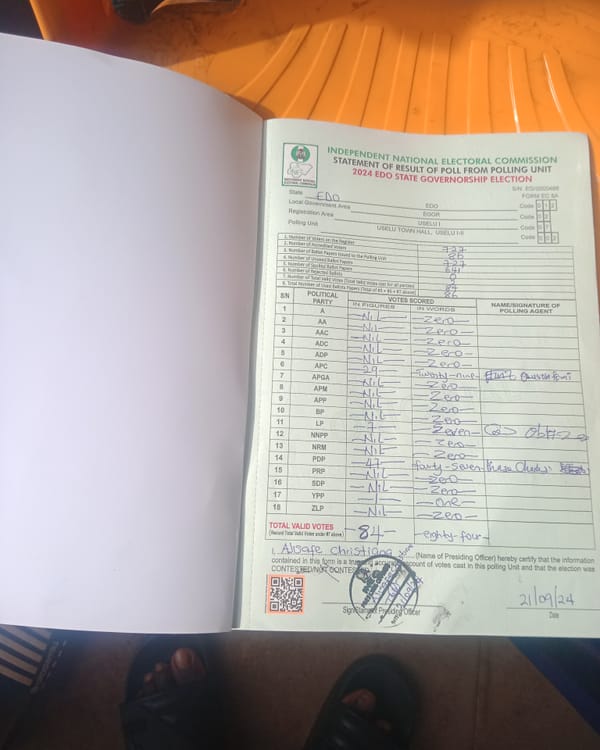 INDEPENDENT NATIONAL ELECTORAL COMMISSION
STATEMENT OF RESULT OF POLL FROM POLLING UNIT
2024 EDO STATE GOVERNORSHIP ELECTION
FORM EC 8A
State EDO
Local Government Area EGOR Code
Registration Area USELU I Code
Polling Unit USELU TOWN HALL, USELU I-II Code
1. Number of Voters on the Register 727
2. Number of Accredited Voters 86
3. Number of Ballot Papers Issued to the Polling Unit 727
4. Number of Unused Ballot Papers 641
5. Number of Spoiled Ballot Papers 0
6. Number of Rejected Ballots
7. Number of Total Valid Votes (Total Valid Votes cast for all parties) 84
8. Total Number of Used Ballot Papers (Total of #5 + #6 + #7 above) 86
SN POLITICAL PARTY VOTES SCORED NAME/SIGNATURE OF POLLING AGENT
IN FIGURES IN WORDS
1 A -NiL- -Zero-
2 AA -NiL- -Zero-
3 AAC -NiL- -Zero-
4 ADC -NiL- -Zero-
5 ADP -NiL- -Zero-
6 APC -29- -Twenty-nine-
7 APGA -NiL- -Zero-
8 APM -NiL- -Zero-
9 APP -NiL- -Zero-
10 BP -NiL- -Zero-
11 LP -7- -Zeven-
12 NNPP -NiL- -Zero-
13 NRM -NiL- -Zero-
14 PDP -47- forty-seven
15 PRP -NiL- -Zero-
16 SDP -NiL- -Zero-
17 YPP -1- -one-
18 ZLP -NiL- -Zero-
TOTAL VALID VOTES -84- -eighty-four-
(Record Total Valid Votes under #7 above)
I, Christiana (Name of Presiding Officer) hereby certify that the information
contained in this form is a true and accurate account of votes cast in this polling Unit and that the election was
CONTESTED/NOT CONTESTED
21/09/24
Signature Presiding Officer Date